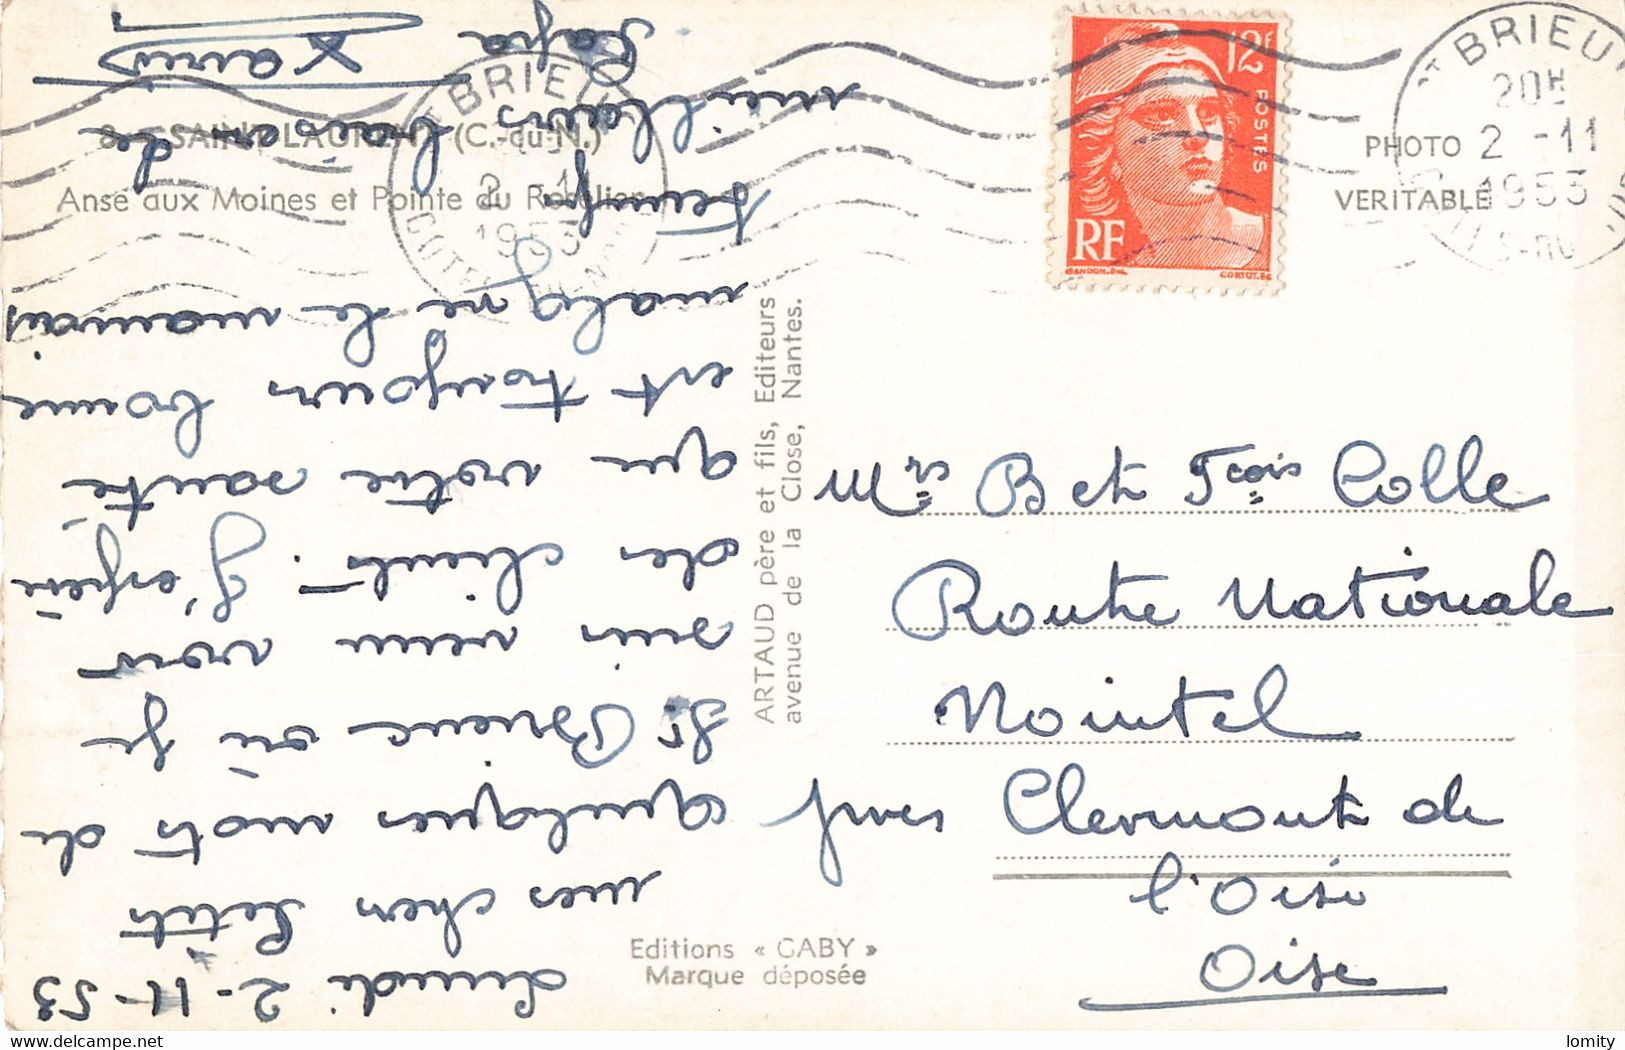 8 - SAINT-LAURENT (C.-du-N.)
Anse aux Moines et Pointe du Roselier
ARTAUD père et fils, Editeurs
avenue de la Close, Nantes.
Editions « GABY »
Marque déposée
PHOTO
VERITABLE
12F
POSTES
RF
GANDON.DEL.
CORTOT.SC
ST BRIEUC
20H
2 - 11
1953
COTES-DU-NORD
ST BRIEUC
2 - 11
1953
COTES-DU-NORD
Lundi 2-11-53
mes chers Petits
quelques mots de
St Brieuc où je
suis venu voir
des clients. J'espère
que votre santé
est toujours bonne
malgré le mauvais
temps
meilleurs baisers de
Papa
Mrs B et Fçois Colle
Route Nationale
Nointel
près Clermont de
l'Oise
Oise
lomity
delcampe.net